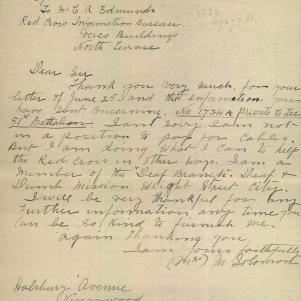 To Mr C A Edmunds
Red Cross Information Bureau
Verco Buildings
North Terrace
Dear Sir
Thank you very much, for your
letter of June 25 and the information you
have sent concerning No 1734A Private
51st Battalion I am sorry I am not
in a position to pay for Cables.
But I am doing what I can to help
the Red Cross in other ways. I am a
member of the "Deaf Branch". Deaf &
Dumb Mission, Wright Street City.
I will be very thankful for any
further information any time you
can be so kind to furnish me.
again thanking you
I am yours faithfully
(Mrs) M Solomon
Halsbury Avenue
Kingswood